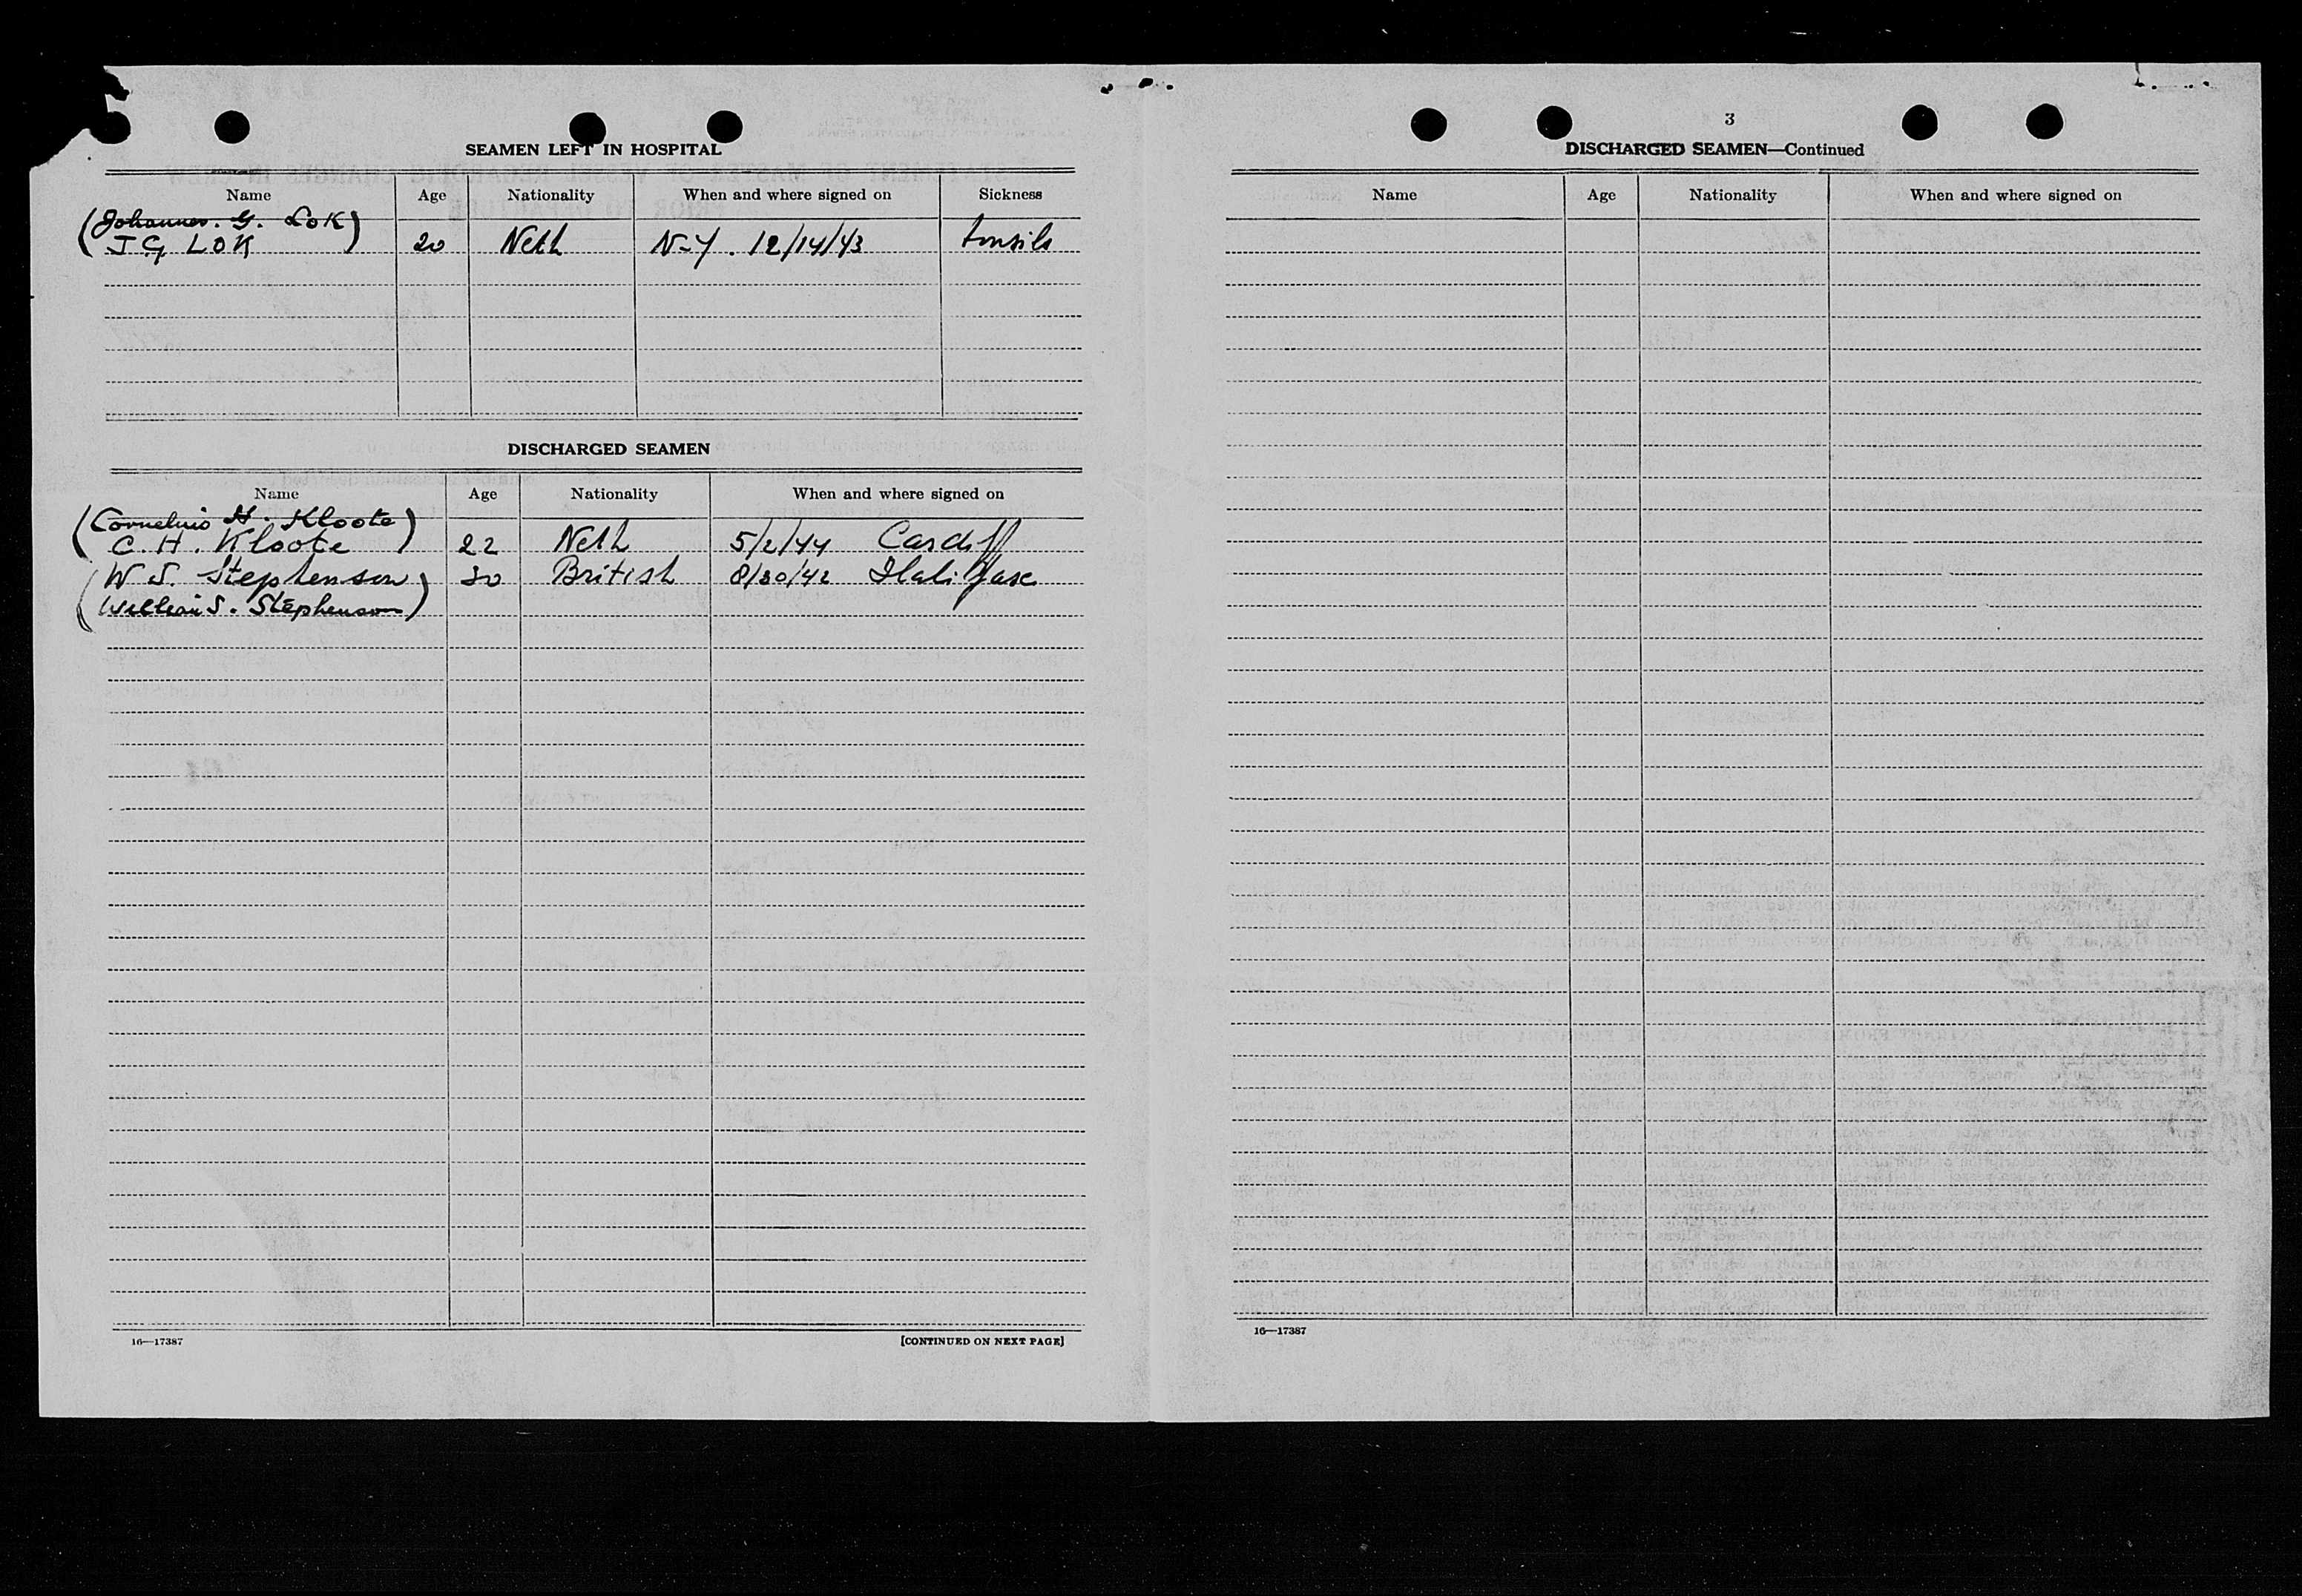 SEAMEN LEFT IN HOSPITAL
Name Age Nationality When and where signed on Sickness
(Johannes. G. Lok)
J G LOK 20 Neth N-Y. 12/14/43 tonsils
DISCHARGED SEAMEN
Name Age Nationality When and where signed on
(Cornelius H. Kloote)
C. H. Kloote 22 Neth 5/2/44 Cardiff
(W S. Stephenson) 30 British 8/30/42 Halifax
William S. Stephenson)
16—17387 [CONTINUED ON NEXT PAGE]
3
DISCHARGED SEAMEN—Continued
Name Age Nationality When and where signed on
16—17387